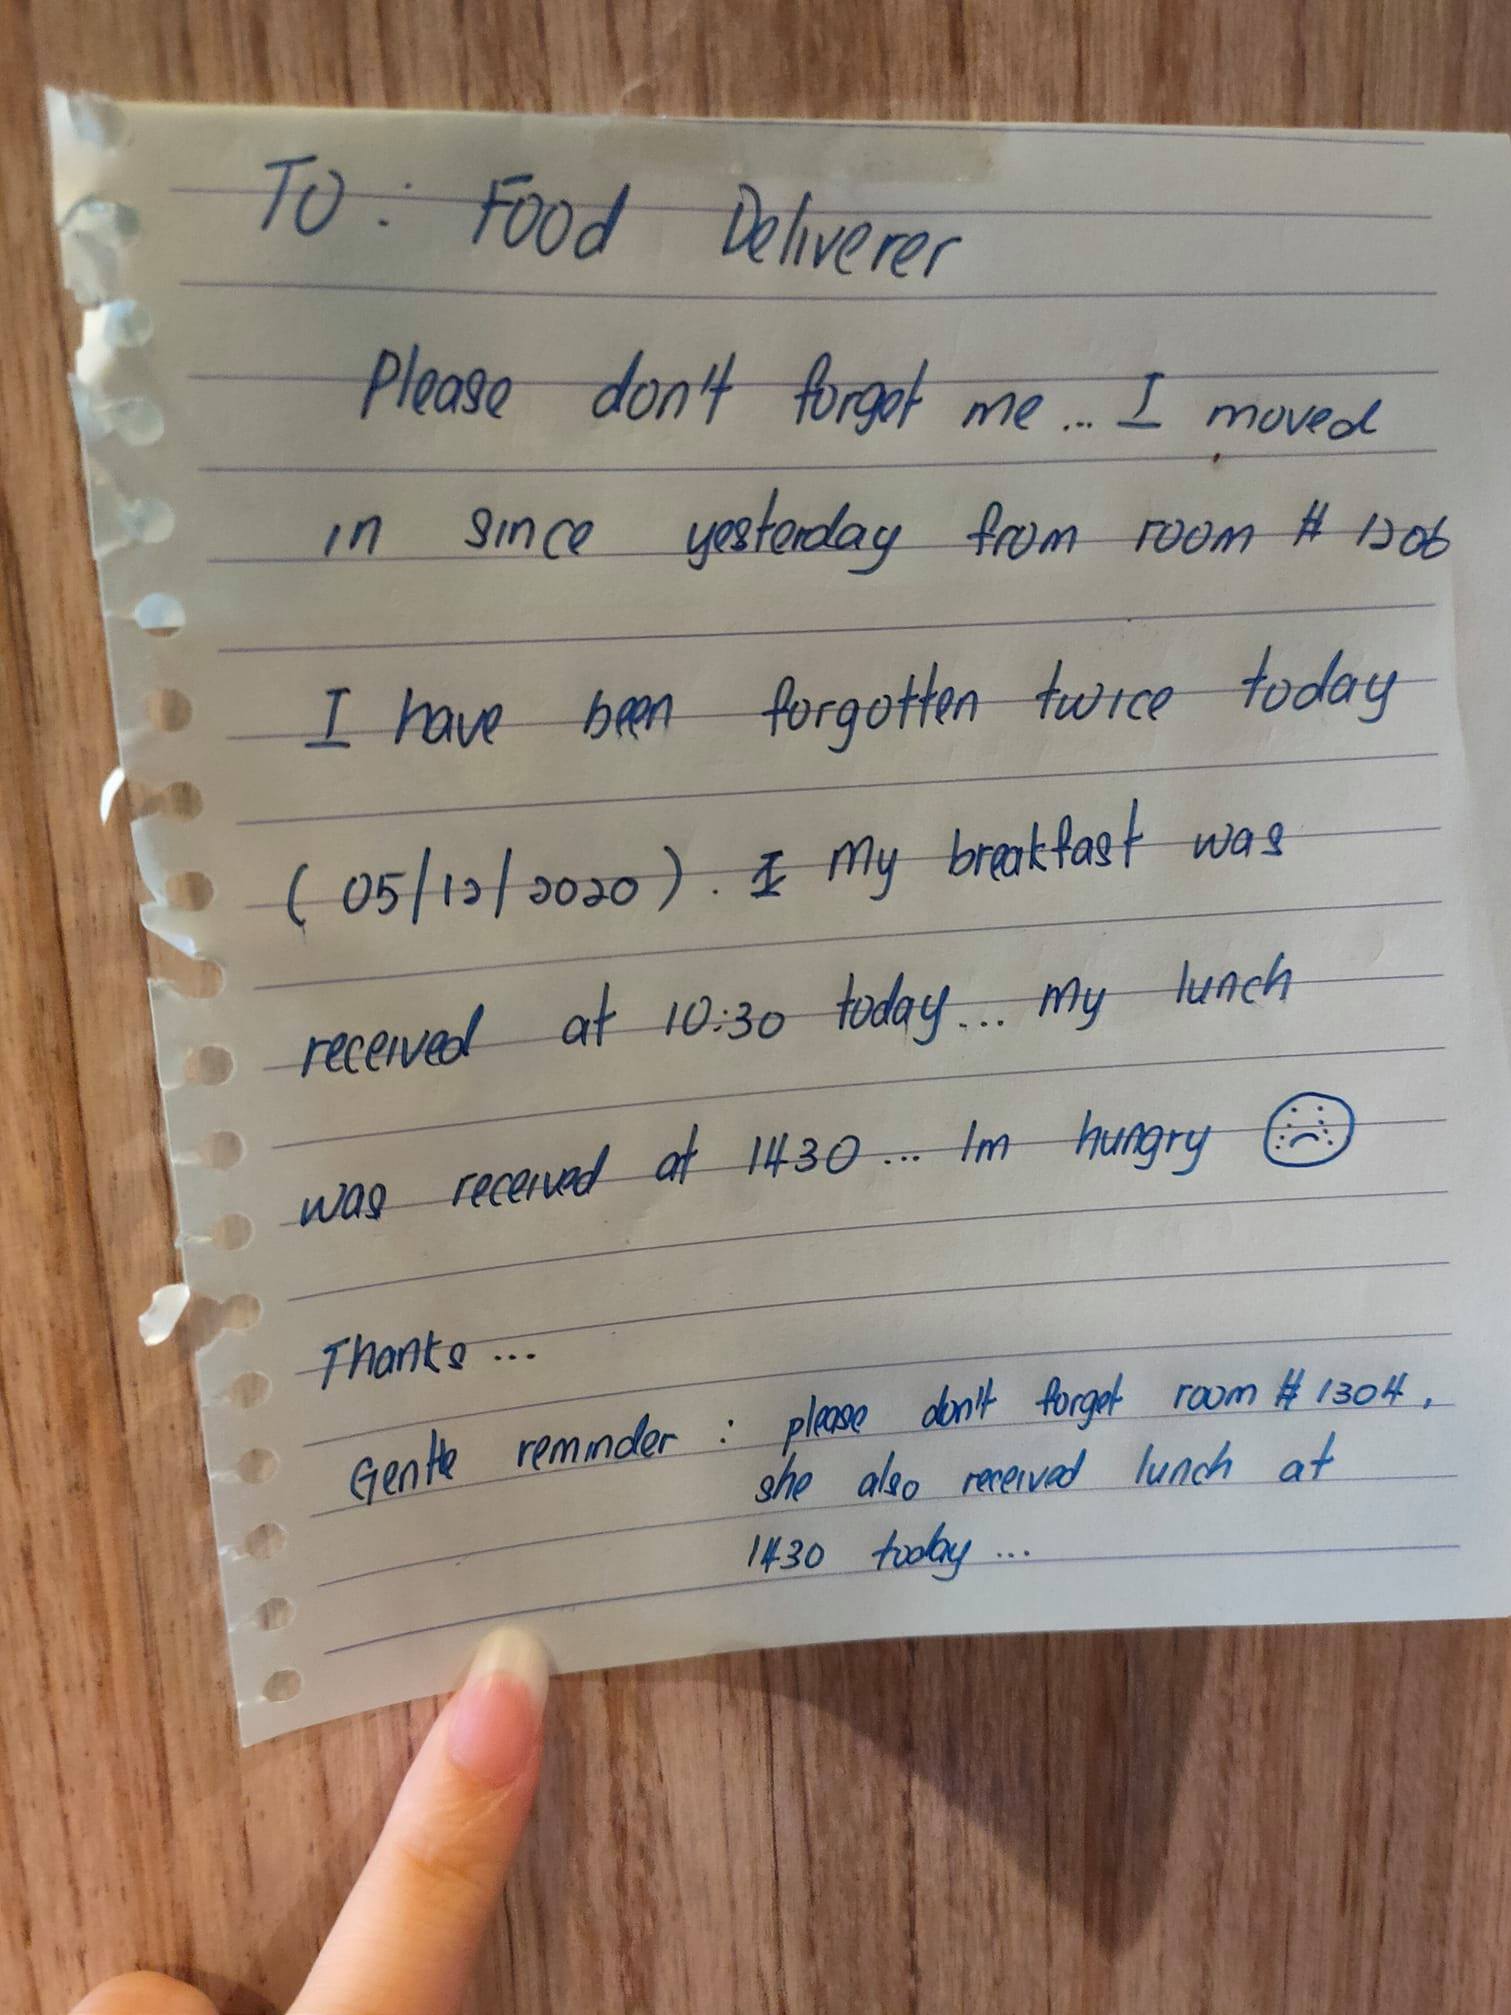 To : Food Deliverer
Please don't forget me ... I moved
in since yesterday from room # 1206
I have been forgotten twice today
(05/12/2020). I My breakfast was
received at 10:30 today... My lunch
was received at 1430... Im hungry
Thanks ...
Gentle reminder : please don't forget room # 1304,
she also received lunch at
1430 today ...